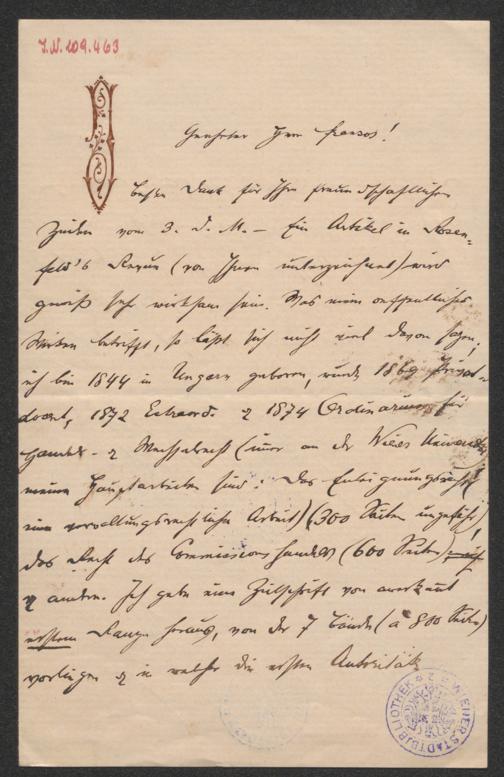 J.N. 109.463
Geehrter Herr Franzos!
Besten Dank für Ihre freundschaftlichen
Zeilen vom 3. d. M. – Ein Artikel in Rosen-
feld's Revue (von Ihnen unterzeichnet) wird
gewiß sehr wirksam sein. Was mein oeffentliches
Wirken betrifft, so läßt sich nicht viel davon sagen;
ich bin 1844 in Ungarn geboren, wurde 1869 Privat-
docent, 1872 Extraord. & 1874 Ordinarius für
Handels- & Wechselrecht (immer an der Wiener Universität)
meine Hauptarbeiten sind: Das Enteignungsrecht
eine verwaltungsrechtliche Arbeit) (300 Seiten ungefähr)
das Recht des Commissionshandels (600 Seiten)
& andere. Ich gebe eine Zeitschrift von anerkannt
erstem Range heraus, von der 7 Bände (à 800 Seiten)
vorliegen & in welcher die ersten Autoritäten
WIENER STADTBIBLIOTHEK